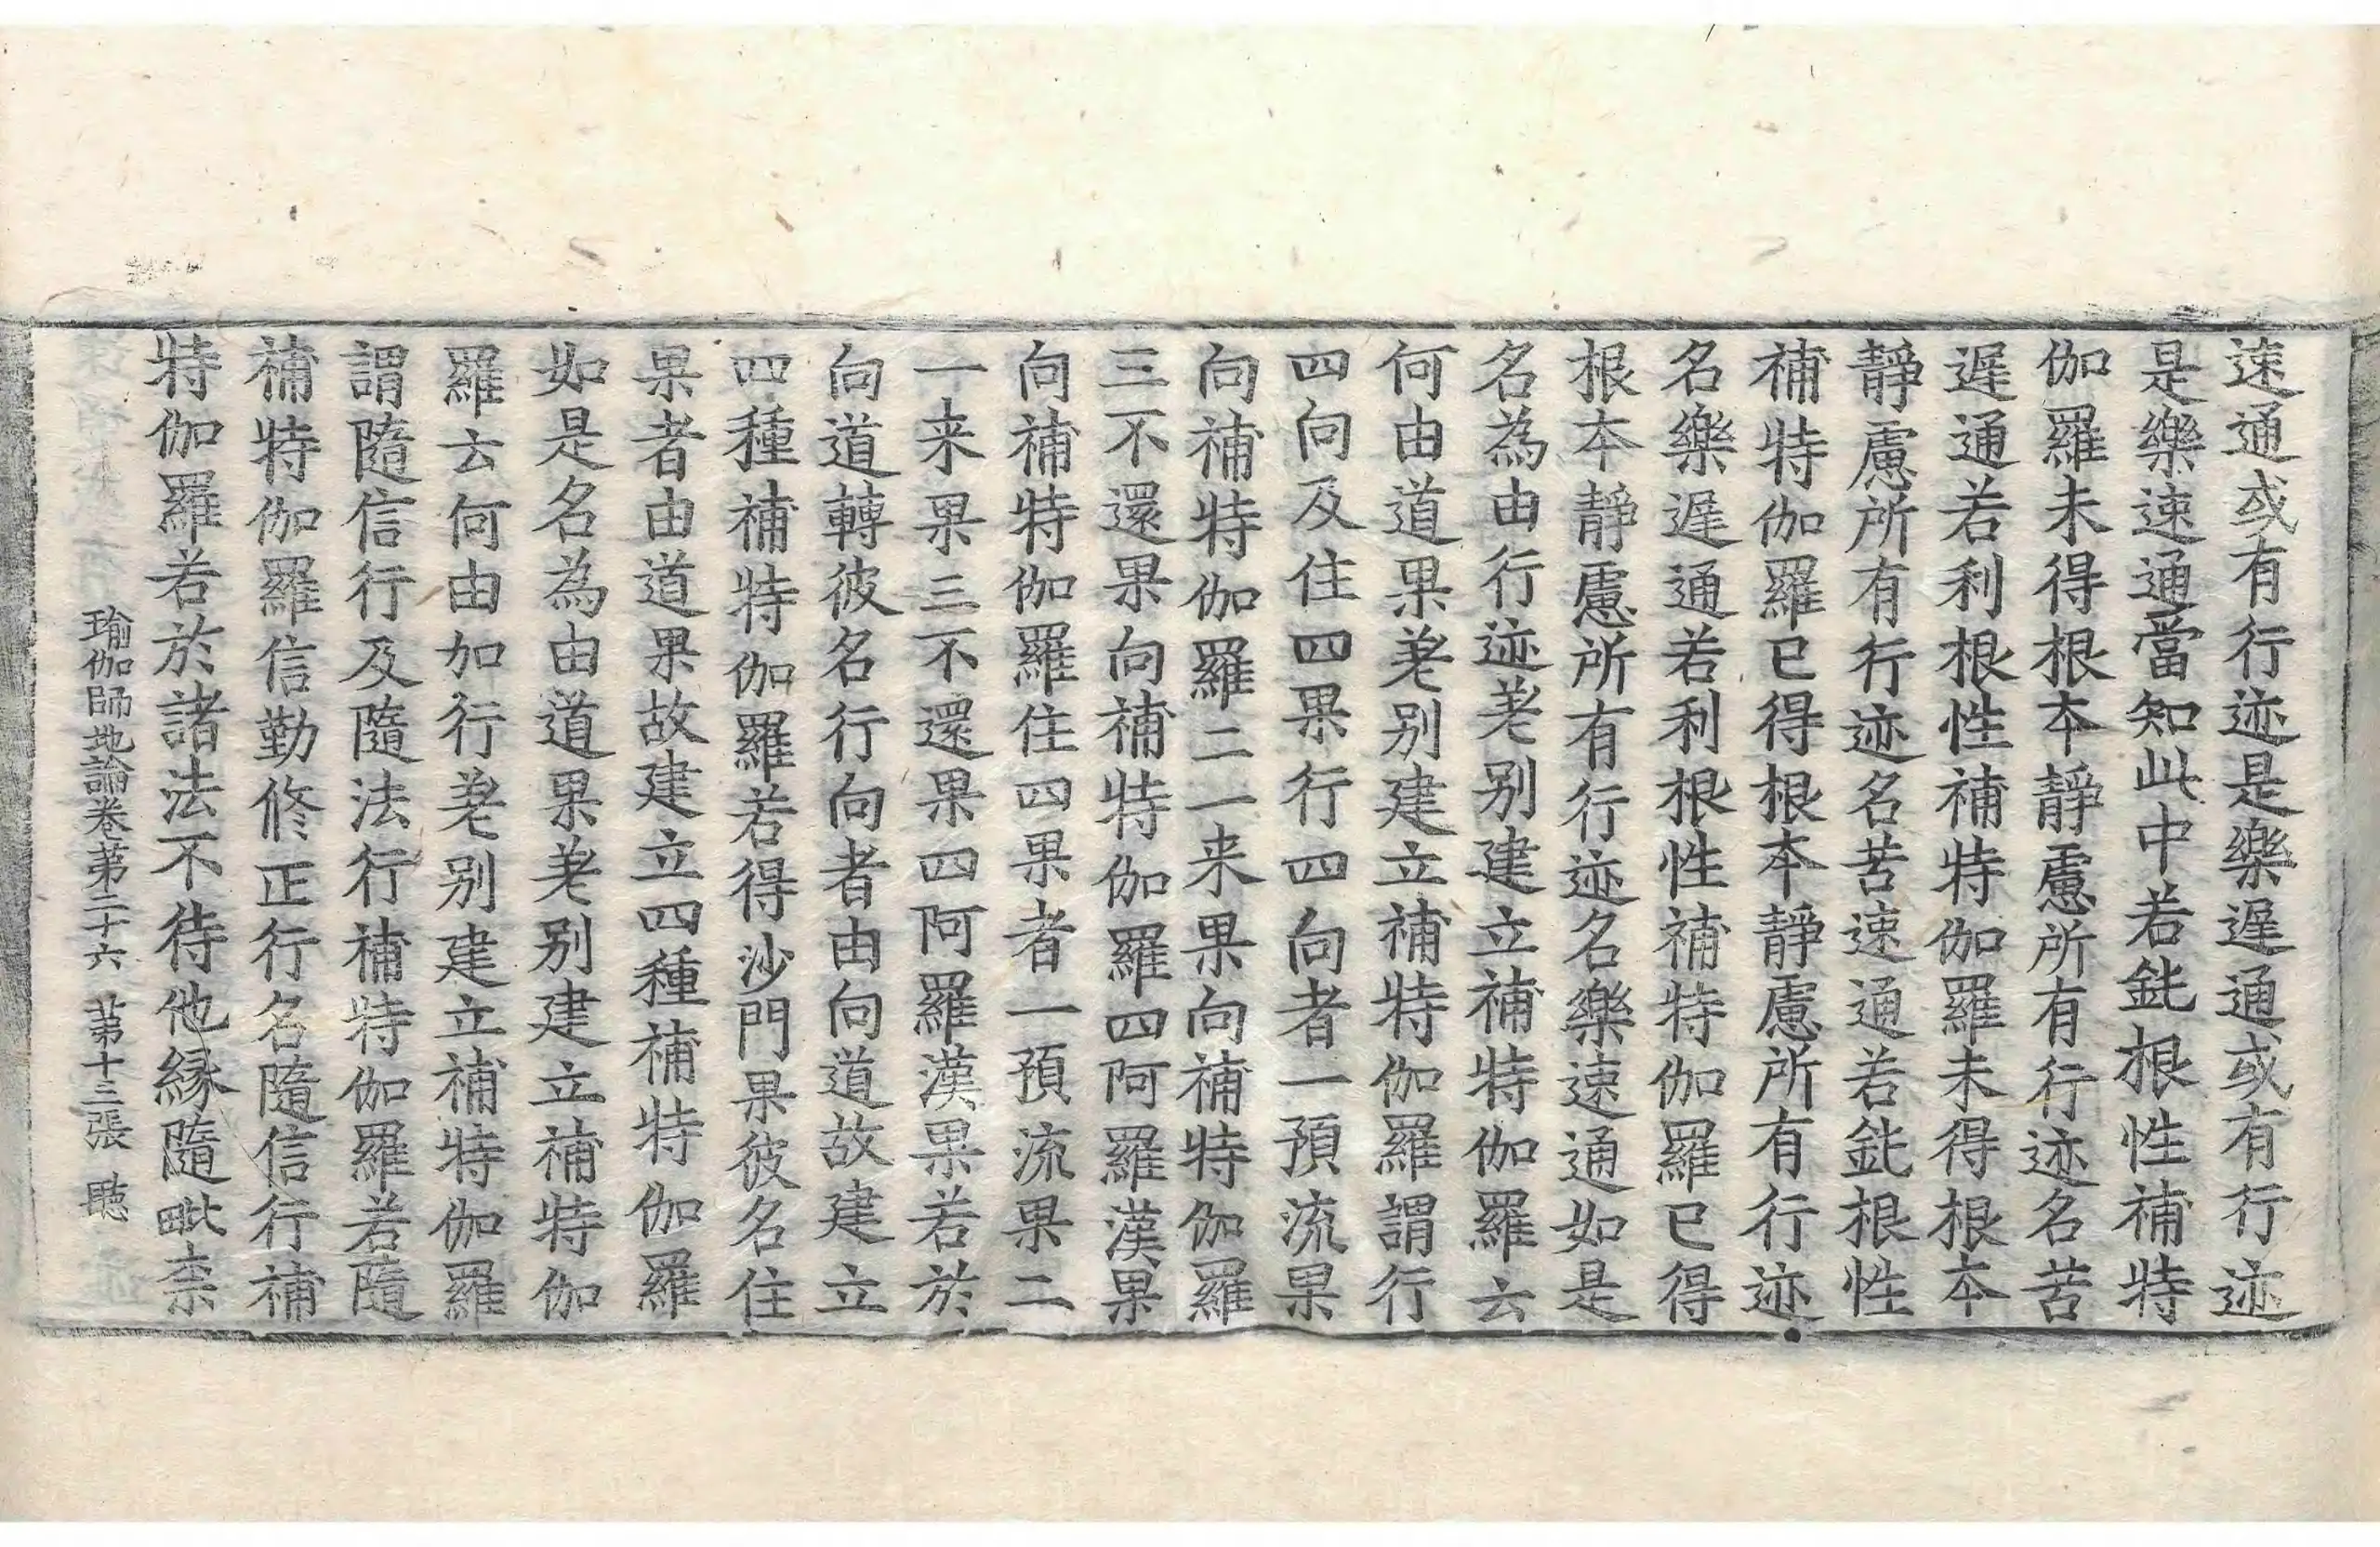 速通或有行迹是樂遲通或有行迹
是樂速通當知此中若鈍根性補特
伽羅未得根本靜慮所有行迹名苦
遲通若利根性補特伽羅未得根本
靜慮所有行迹名苦速通若鈍根性
補特伽羅已得根本靜慮所有行迹
名樂遲通若利根性補特伽羅已得
根本靜慮所有行迹名樂速通如是
名為由行迹差别建立補特伽羅云
何由道果差别建立補特伽羅謂行
四向及住四果行四向者一預流果
向補特伽羅二一来果向補特伽羅
三不還果向補特伽羅四阿羅漢果
向補特伽羅住四果者一預流果二
一来果三不還果四阿羅漢果若於
向道轉彼名行向者由向道故建立
四種補特伽羅若得沙門果彼名住
果者由道果故建立四種補特伽羅
如是名為由道果差别建立補特伽
羅云何由加行差别建立補特伽羅
謂隨信行及隨法行補特伽羅若隨
補特伽羅信勤修正行名隨信行補
特伽羅若於諸法不待他縁隨毗柰
瑜伽師地論卷苐二十六 苐十三張 聽